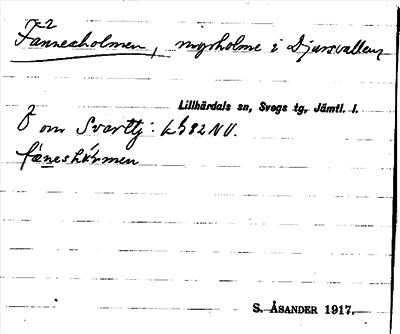 Fännesholmen, myrholme i Djursvallen,
Lillhärdals sn, Svegs tg, Jämtl. l.
Ö om Svarttj: Lh 82 NV.
fäneshårmen
S. ÅSANDER 1917.